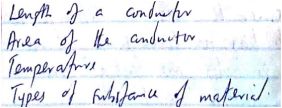 Length of a conductor
Area of the conductor
Temperature
Types of substance of material.